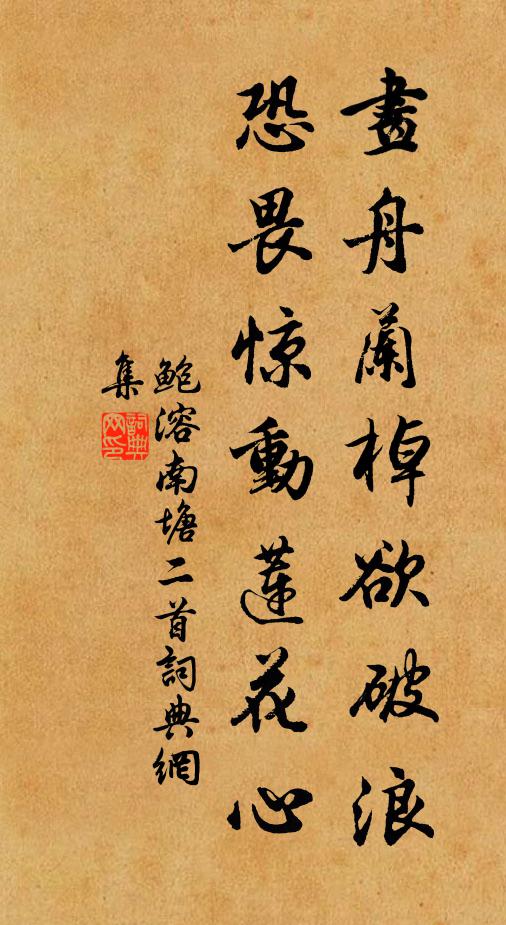 畫舟蘭棹欲破浪
恐畏惊動蓮花心
鮑溶南塘二首詞典網
集
詞典
网印